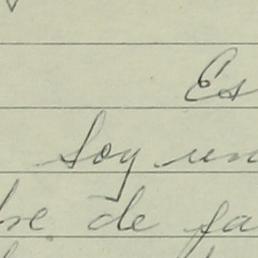 Es
Soy un
bre de fa